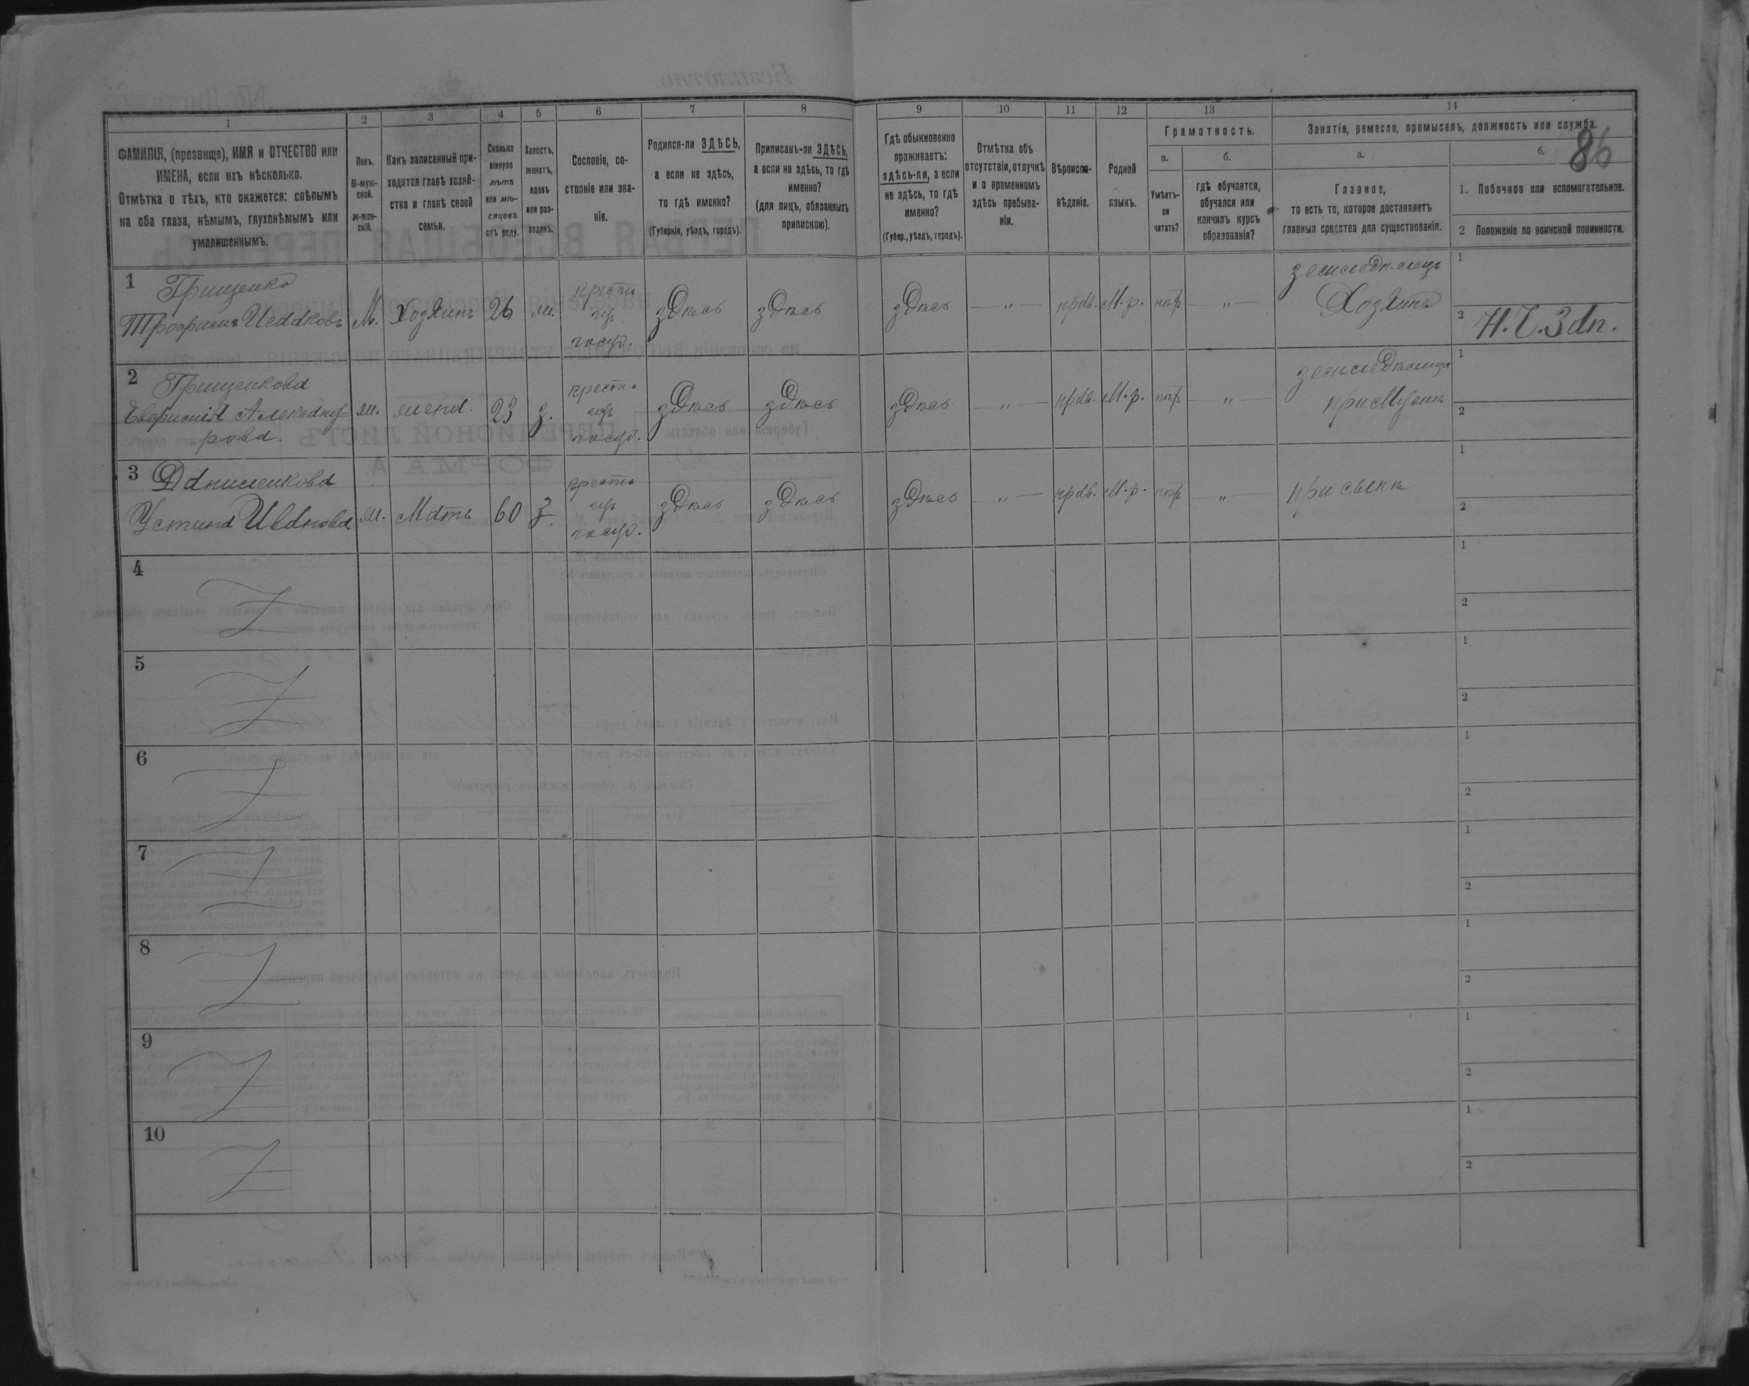 86
1
2
3
4
5
6
7
8
9
10
11
12
13
14
ФАМИЛІЯ, (прозвище), ИМЯ и ОТЧЕСТВО или
ИМЕНА, если ихъ нѣсколько.
Отмѣтка о тѣхъ, кто окажется: слѣпымъ
на оба глаза, нѣмымъ, глухонѣмымъ или
умалишеннымъ.
Полъ.
М-муж-
ской.
ж-жен-
скій.
Какъ записанный при-
ходится главѣ хозяй-
ства и главѣ своей
семьи.
Сколько
минуло
лѣтъ
или мѣ-
сяцевъ
отъ роду.
Холостъ,
женатъ,
вдовъ
или раз-
веденъ.
Сословіе, со-
стояніе или зва-
ніе.
Родился-ли ЗДѢСЬ,
а если не здѣсь,
то гдѣ именно?
(Губернія, уѣздъ, городъ).
Приписанъ-ли ЗДѢСЬ,
а если не здѣсь, то гдѣ
именно?
(для лицъ, обязанныхъ
припискою).
Гдѣ обыкновенно
проживаетъ:
здѣсь-ли, а если
не здѣсь, то гдѣ
именно?
(Губер., уѣздъ, городъ).
Отмѣтка объ
отсутствіи, отлучкѣ
и о временномъ
здѣсь пребыва-
ніи.
Вѣроиспо-
вѣданіе.
Родной
языкъ.
Грамотность.
а.
б.
Умѣетъ-
ли
читать?
гдѣ обучается,
обучался или
кончилъ курсъ
образованія?
Занятіе, ремесло, промыселъ, должность или служба.
а.
б.
Главное,
то есть то, которое доставляетъ
главныя средства для существованія.
1. Побочное или вспомогательное.
2 Положеніе по воинской повинности.
1
Грищенко
Трофимъ Исаковъ
М.
Хозяинъ
26
ж.
кресть
изъ
госуд.
здѣсь
здѣсь
здѣсь
— " —
прав.
М.р.
нѣт
— " —
земледѣлецъ
Хозяинъ
1
2
2
Грищенкова
Евфимія Александ-
рова.
ж.
жена.
23
з.
кресть
изъ
госуд.
здѣсь
здѣсь
здѣсь
" —
прав.
М.р.
нѣт
— " —
при мужѣ
1
2
3
Даниленкова
Устина Иванова
ж.
Мать
60
з.
кресть
изъ
госуд.
здѣсь
здѣсь
здѣсь
" —
прав.
М.р.
нѣт
— " —
при сынѣ
1
2
4
1
2
5
1
2
6
1
2
7
1
2
8
1
2
9
1
2
10
1
2